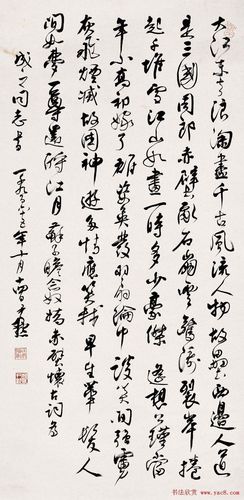 大江東去浪淘盡千古風流人物故壘西邊人道
是三國周郎赤壁亂石崩雲驚濤裂岸捲
起千堆雪江山如畫一時多少豪傑遥想公瑾當
年小喬初嫁了雄姿英發羽扇綸巾談笑間強虜
灰飛煙滅故國神遊多情應笑我早生華髮人
間如夢一尊還酹江月蘇子瞻念奴嬌赤壁懷古詞為
同志書
年十月
书法欣赏
www.yac8.com